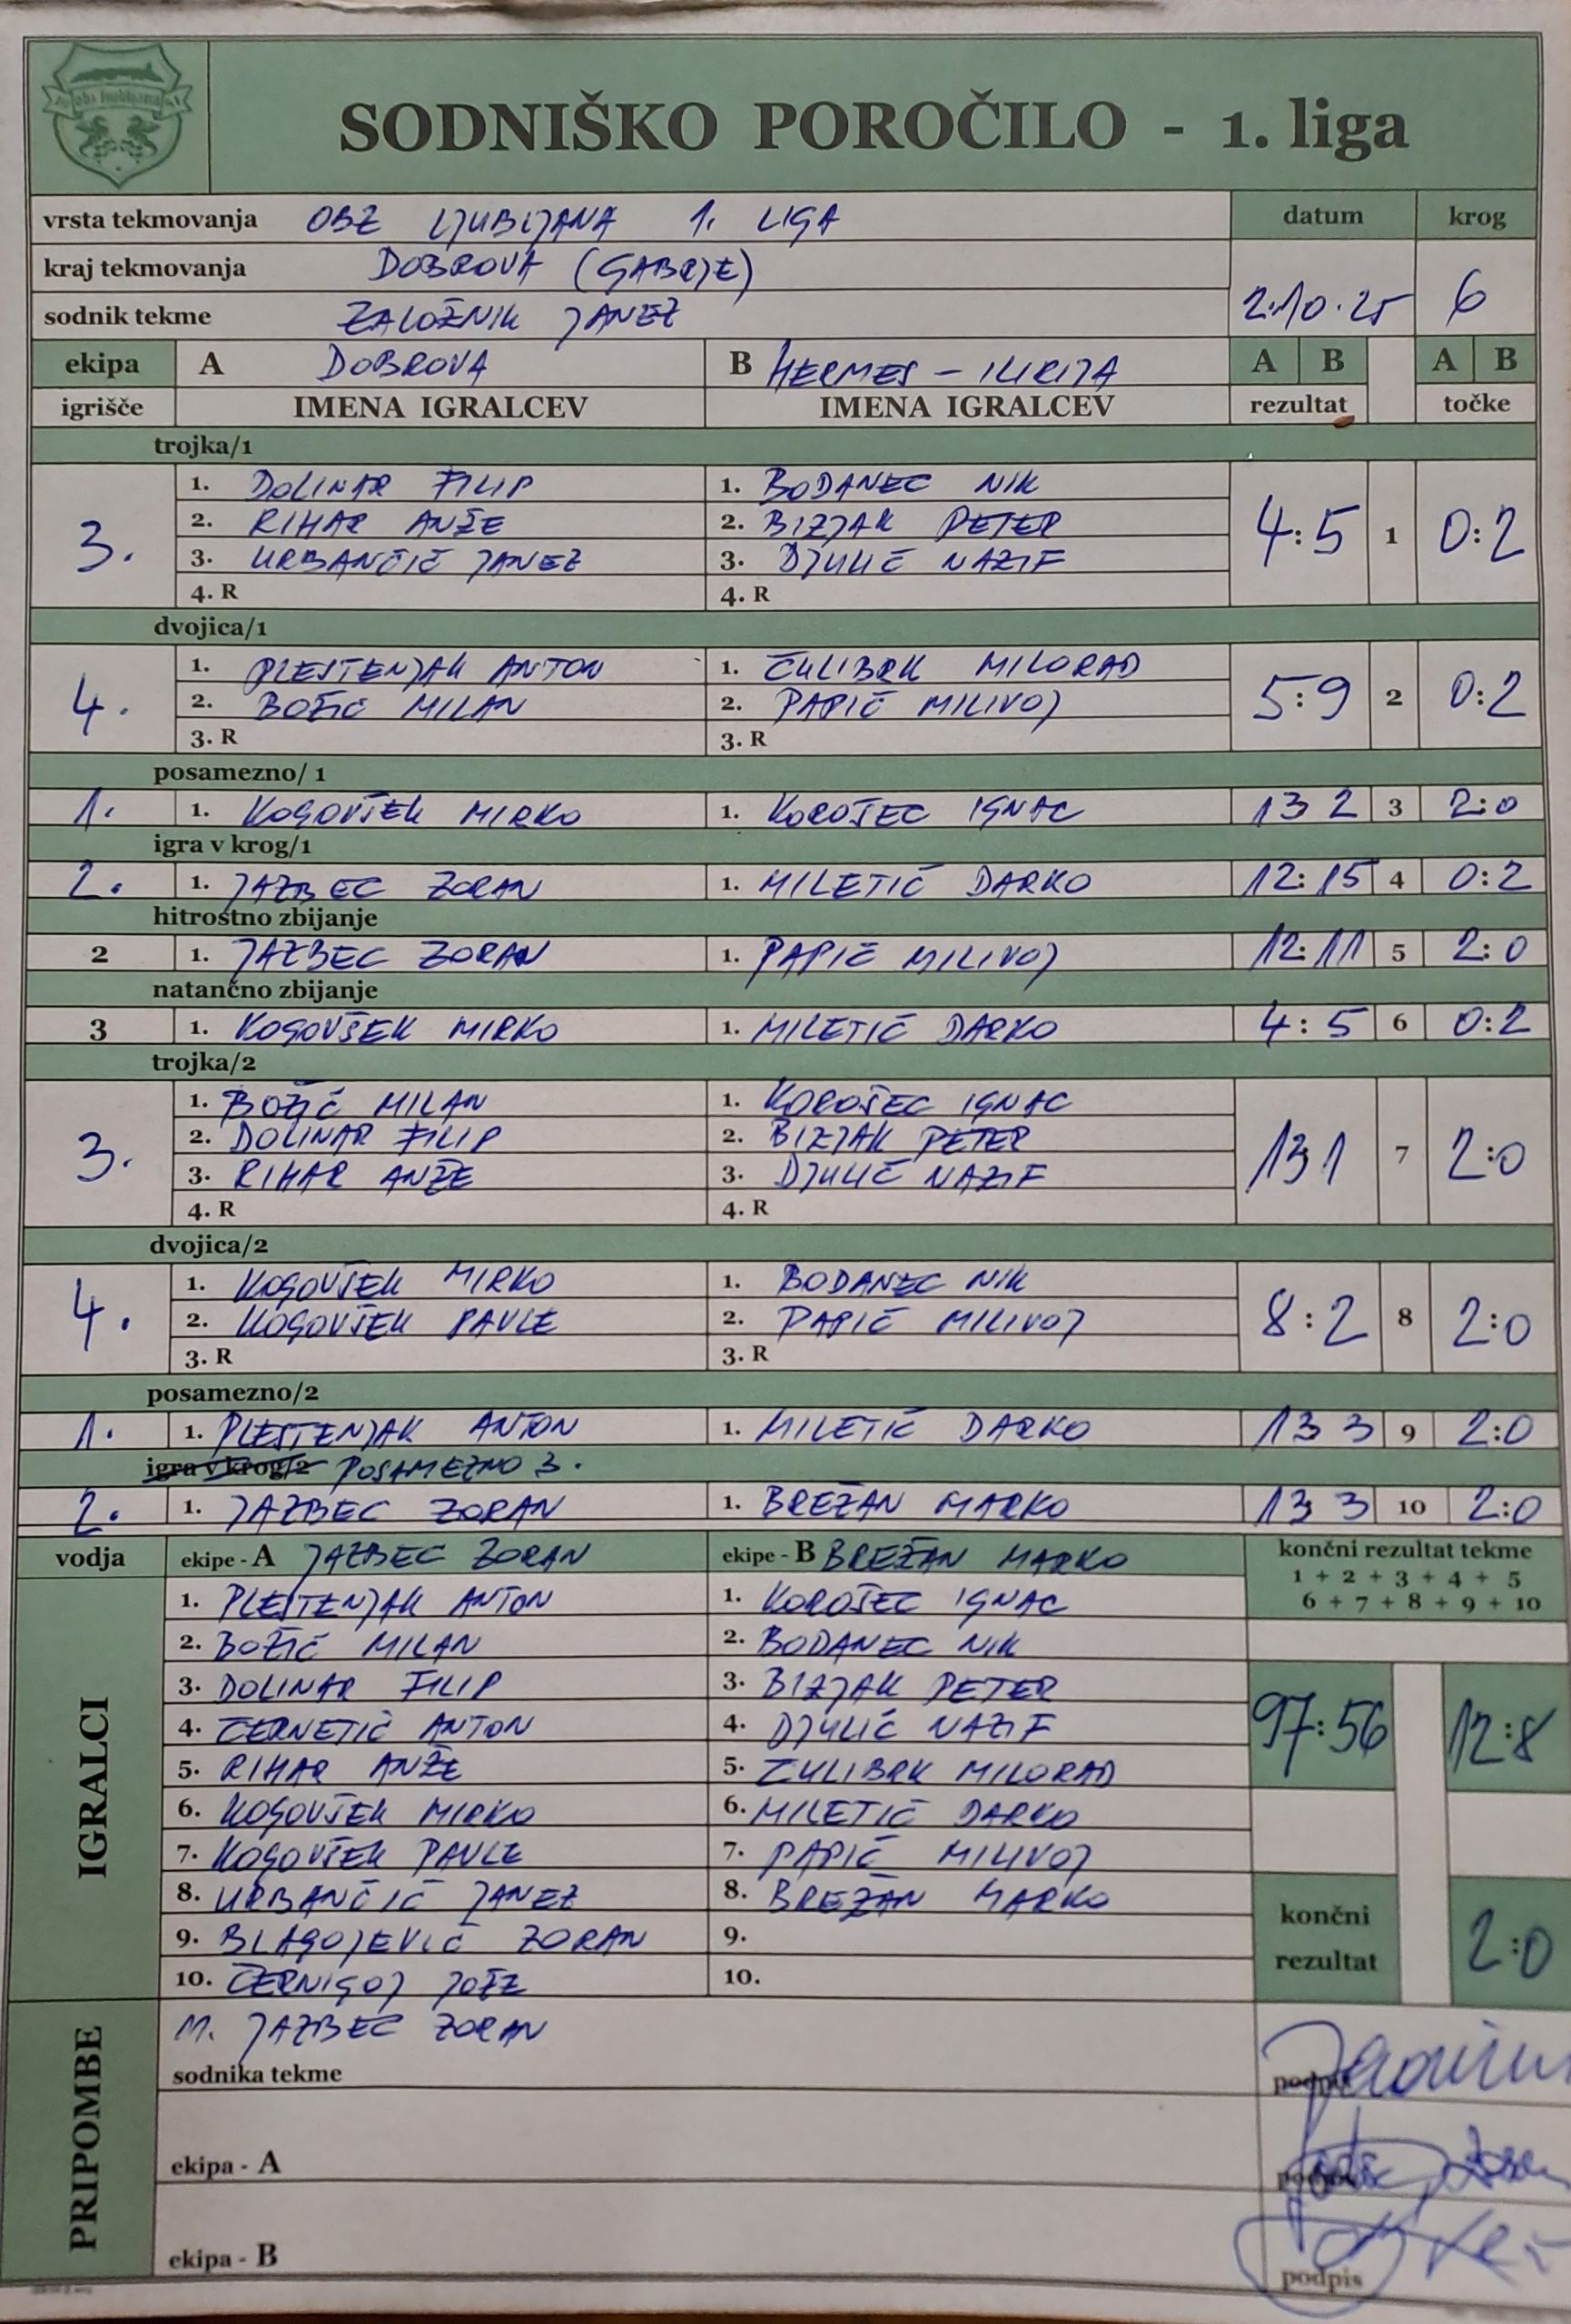 SODNIŠKO POROČILO - 1. liga
vrsta tekmovanja OBZ LJUBLJANA 1. LIGA datum krog
kraj tekmovanja DOBROVA (GABRJE)
sodnik tekme ZALOŽNIK JANEZ 2.10.25 6
ekipa A DOBROVA B HERMES - ILIRIJA A B A B
igrišče IMENA IGRALCEV IMENA IGRALCEV rezultat točke
trojka/1
1. DOLINAR FILIP 1. BODANEC NIK
2. RIHAR ANŽE 2. BIZJAK PETER
3. 4:5 1 0:2
3. URBANČIČ JANEZ 3. DJULIČ NAZIF
4. R 4. R
dvojica/1
1. PLESTENJAK ANTON 1. ČULIBRK MILORAD
4. 5:9 2 0:2
2. BOŽIČ MILAN 2. PAPIČ MILIVOJ
3. R 3. R
posamezno/ 1
1. 1. KOGOVŠEK MIRKO 1. KOROŠEC IGNAC 13 2 3 2:0
igra v krog/1
2. 1. JAZBEC ZORAN 1. MILETIČ DARKO 12:15 4 0:2
hitrostno zbijanje
2 1. JAZBEC ZORAN 1. PAPIČ MILIVOJ 12:11 5 2:0
natančno zbijanje
3 1. KOGOVŠEK MIRKO 1. MILETIČ DARKO 4:5 6 0:2
trojka/2
1. BOŽIČ MILAN 1. KOROŠEC IGNAC
2. DOLINAR FILIP 2. BIZJAK PETER
3. 13 1 7 2:0
3. RIHAR ANŽE 3. DJULIČ NAZIF
4. R 4. R
dvojica/2
1. KOGOVŠEK MIRKO 1. BODANEC NIK
4. 8:2 8 2:0
2. KOGOVŠEK PAVLE 2. PAPIČ MILIVOJ
3. R 3. R
posamezno/2
1. 1. PLESTENJAK ANTON 1. MILETIČ DARKO 13 3 9 2:0
igra v krog/2 POSAMEZNO 3.
2. 1. JAZBEC ZORAN 1. BREŽAN MARKO 13 3 10 2:0
vodja ekipe - A JAZBEC ZORAN ekipe - B BREŽAN MARKO končni rezultat tekme
1 + 2 + 3 + 4 + 5
6 + 7 + 8 + 9 + 10
IGRALCI
1. PLESTENJAK ANTON 1. KOROŠEC IGNAC
2. BOŽIČ MILAN 2. BODANEC NIK
3. DOLINAR FILIP 3. BIZJAK PETER
4. ČERNETIČ ANTON 4. DJULIČ NAZIF 97:56 12:8
5. RIHAR ANŽE 5. ČULIBRK MILORAD
6. KOGOVŠEK MIRKO 6. MILETIČ DARKO
7. KOGOVŠEK PAVLE 7. PAPIČ MILIVOJ
8. URBANČIČ JANEZ 8. BREŽAN MARKO
9. BLAGOJEVIČ ZORAN 9.
10. ČERNIGOJ JOŽE 10.
končni rezultat 2:0
PRIPOMBE
11. JAZBEC ZORAN
sodnika tekme podpis
ekipa - A podpis
ekipa - B podpis